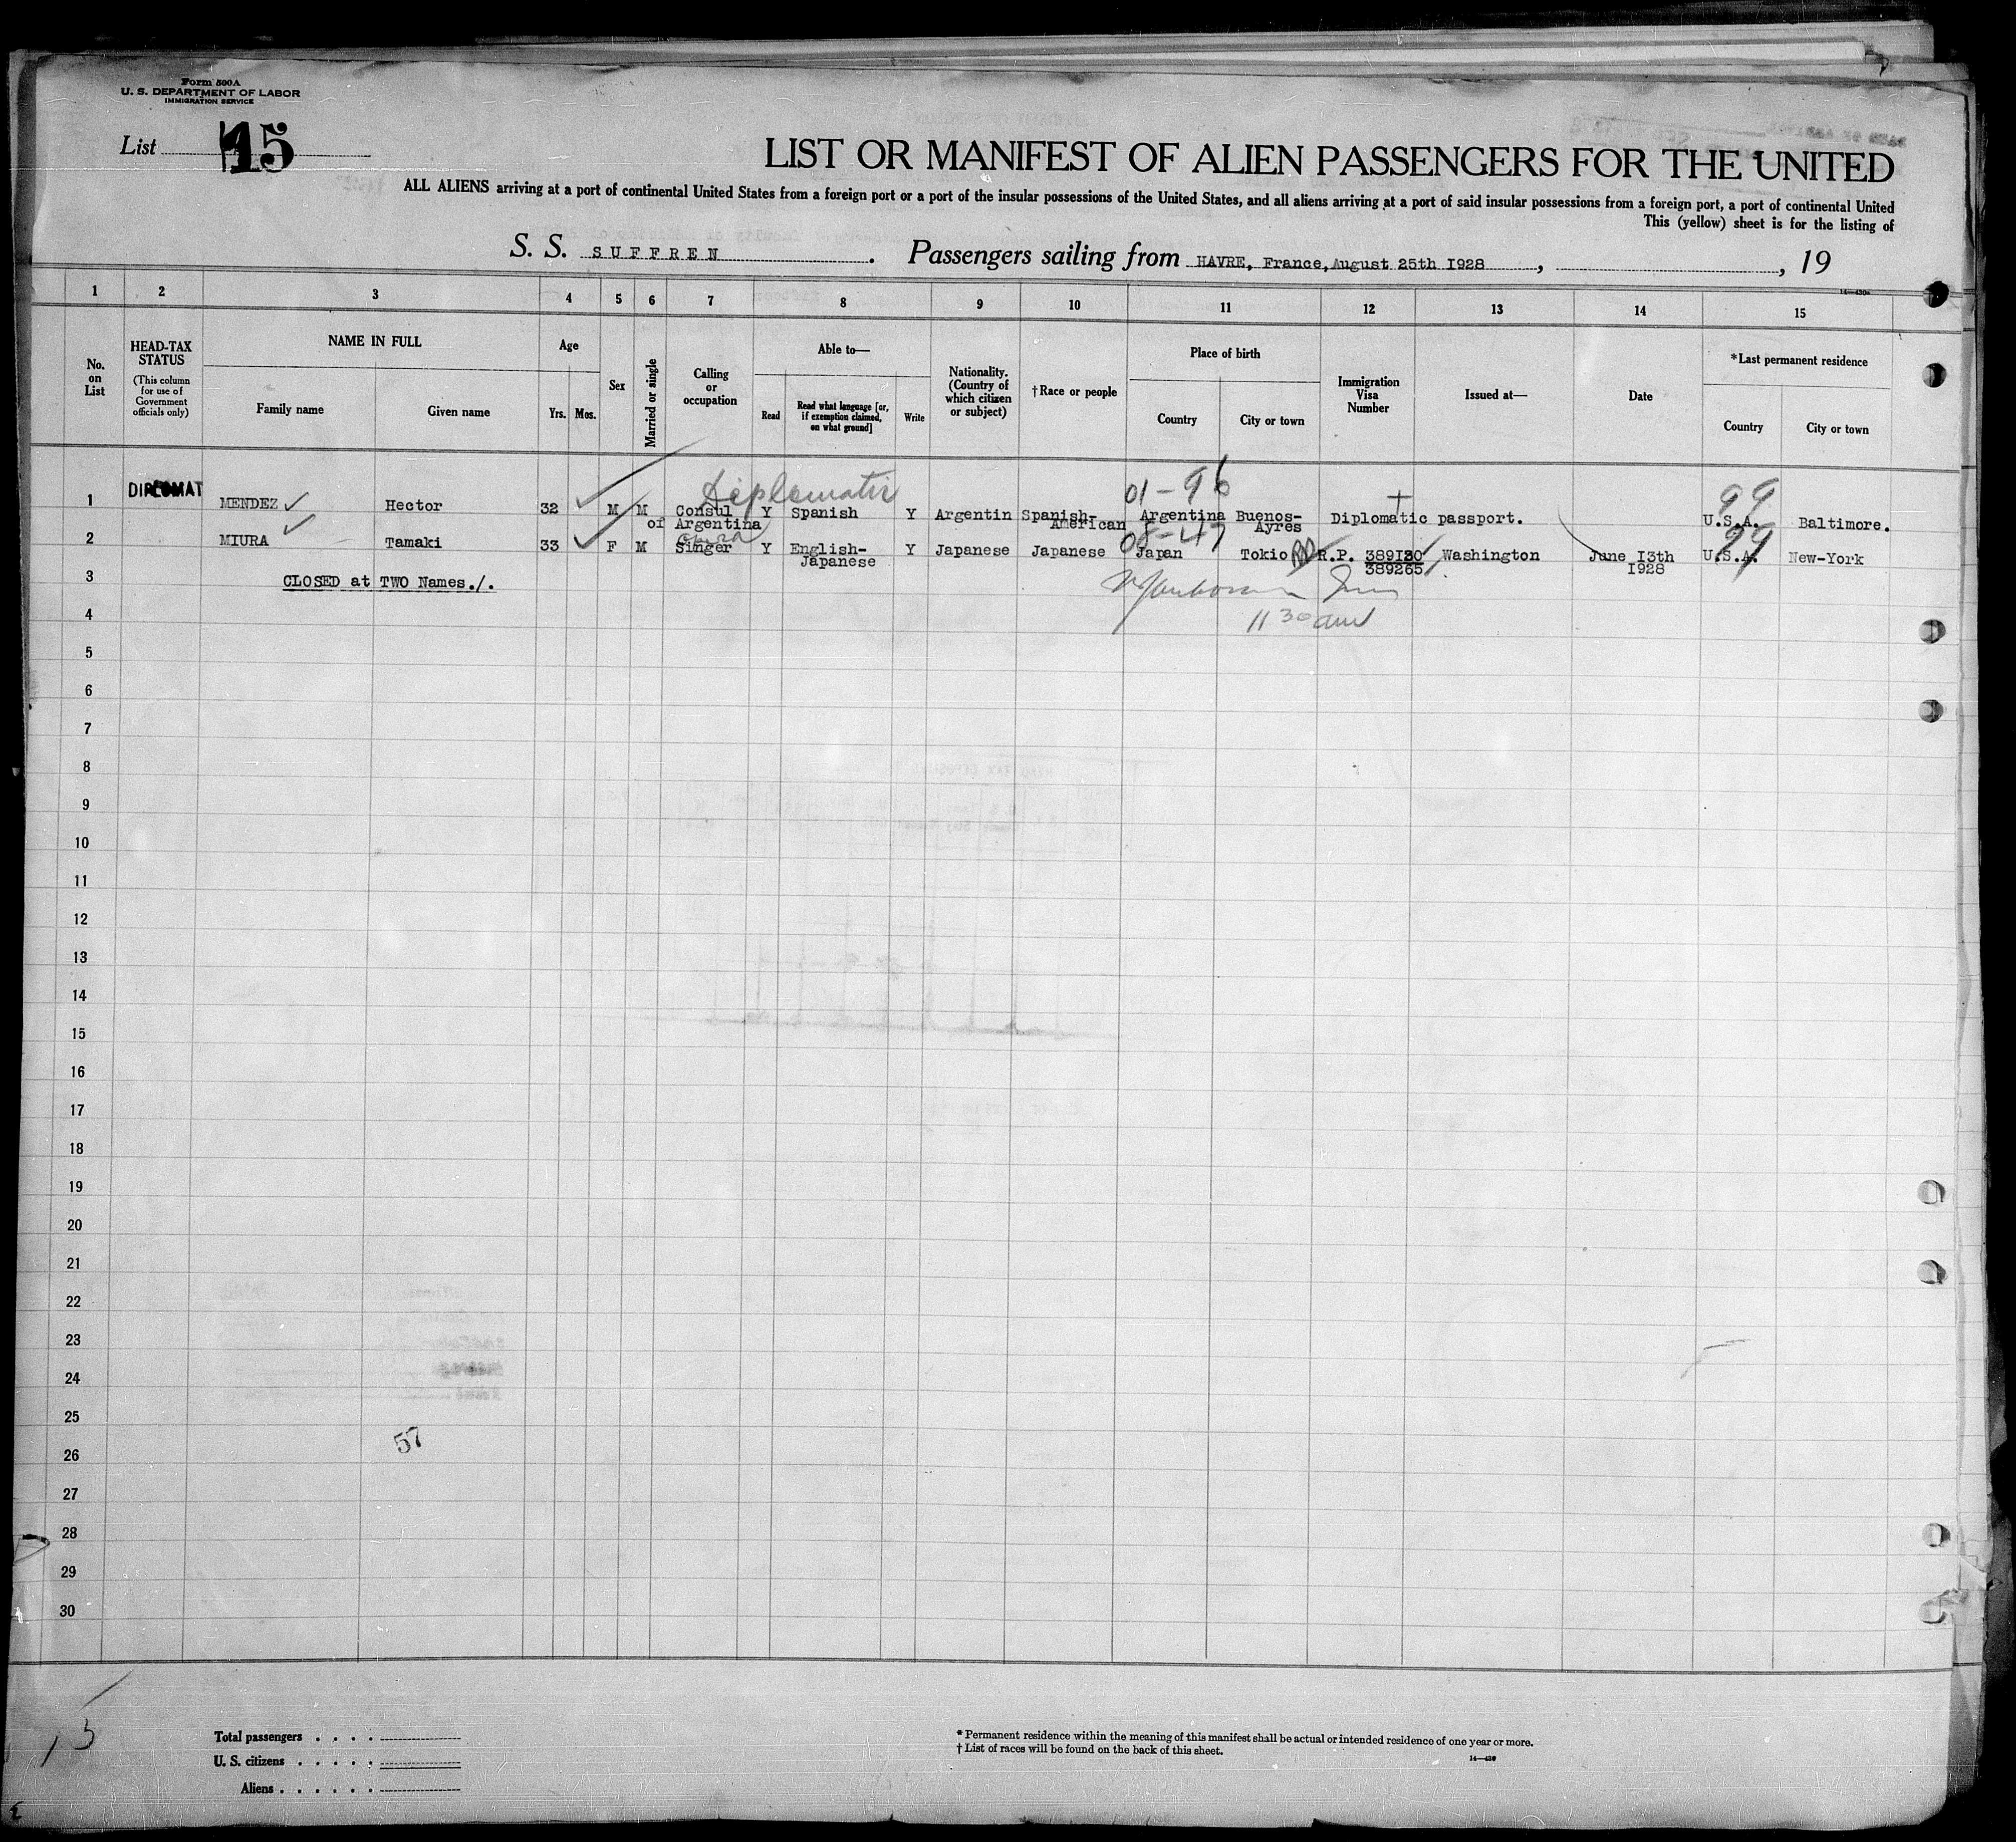 Form 500A
U. S. DEPARTMENT OF LABOR
IMMIGRATION SERVICE
List 15
LIST OR MANIFEST OF ALIEN PASSENGERS FOR THE UNITED
ALL ALIENS arriving at a port of continental United States from a foreign port or a port of the insular possessions of the United States, and all aliens arriving at a port of said insular possessions from a foreign port, a port of continental United
This (yellow) sheet is for the listing of
S. S. SUFFREN. Passengers sailing from HAVRE, France, August 25th 1928, , 19
1 2 3 4 5 6 7 8 9 10 11 12 13 14 15
No. on List
HEAD-TAX STATUS
(This column for use of Government officials only)
NAME IN FULL
Family name
Given name
Age
Yrs.
Mos.
Sex
Married or single
Calling or occupation
Able to—
Read
Read what language [or, if exemption claimed, on what ground]
Write
Nationality. (Country of which citizen or subject)
†Race or people
Place of birth
Country
City or town
Immigration Visa Number
Issued at—
Date
*Last permanent residence
Country
City or town
Diplomatic 01-96 99
1 DIPLOMAT MENDEZ Hector 32 M M Consul of Argentina Y Spanish Y Argentin Spanish-American Argentina Buenos-Ayres Diplomatic passport. U.S.A. Baltimore.
opera 08-47 99
2 MIURA Tamaki 33 F M Singer Y English-Japanese Y Japanese Japanese Japan Tokio R.P. 389130 389265 Washington June 13th 1928 U.S.A. New-York
3 CLOSED at TWO Names./.
4 11 30 am
5
6
7
8
9
10
11
12
13
14
15
16
17
18
19
20
21
22
23
24
25
57
26
27
28
29
30
15
Total passengers . . . .
U. S. citizens . . . . .
Aliens . . . . . .
* Permanent residence within the meaning of this manifest shall be actual or intended residence of one year or more.
† List of races will be found on the back of this sheet.
14—430